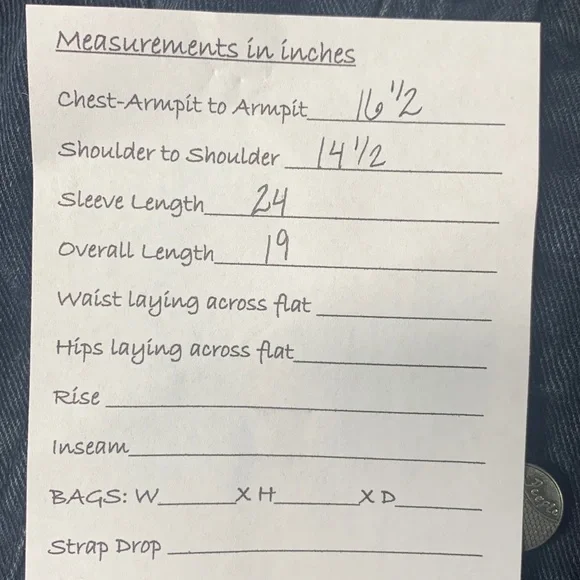 Measurements in inches
Chest-Armpit to Armpit 16 1/2
Shoulder to Shoulder 14 1/2
Sleeve Length 24
Overall Length 19
Waist laying across flat
Hips laying across flat
Rise
Inseam
BAGS: W______X H______X D______
Strap Drop